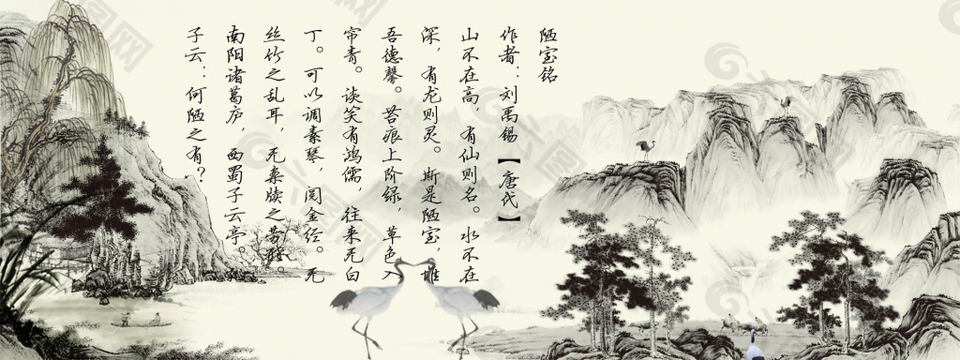 陋室铭
作者：刘禹锡【唐代】
山不在高 有仙则名。水不在
深，有龙则灵。斯是陋室，惟
吾德馨。苔痕上阶绿，草色入
帘青。谈笑有鸿儒，往来无白
丁。可以调素琴，阅金经。无
丝竹之乱耳，无案牍之劳形。
南阳诸葛庐，西蜀子云亭。孔
子云：何陋之有？